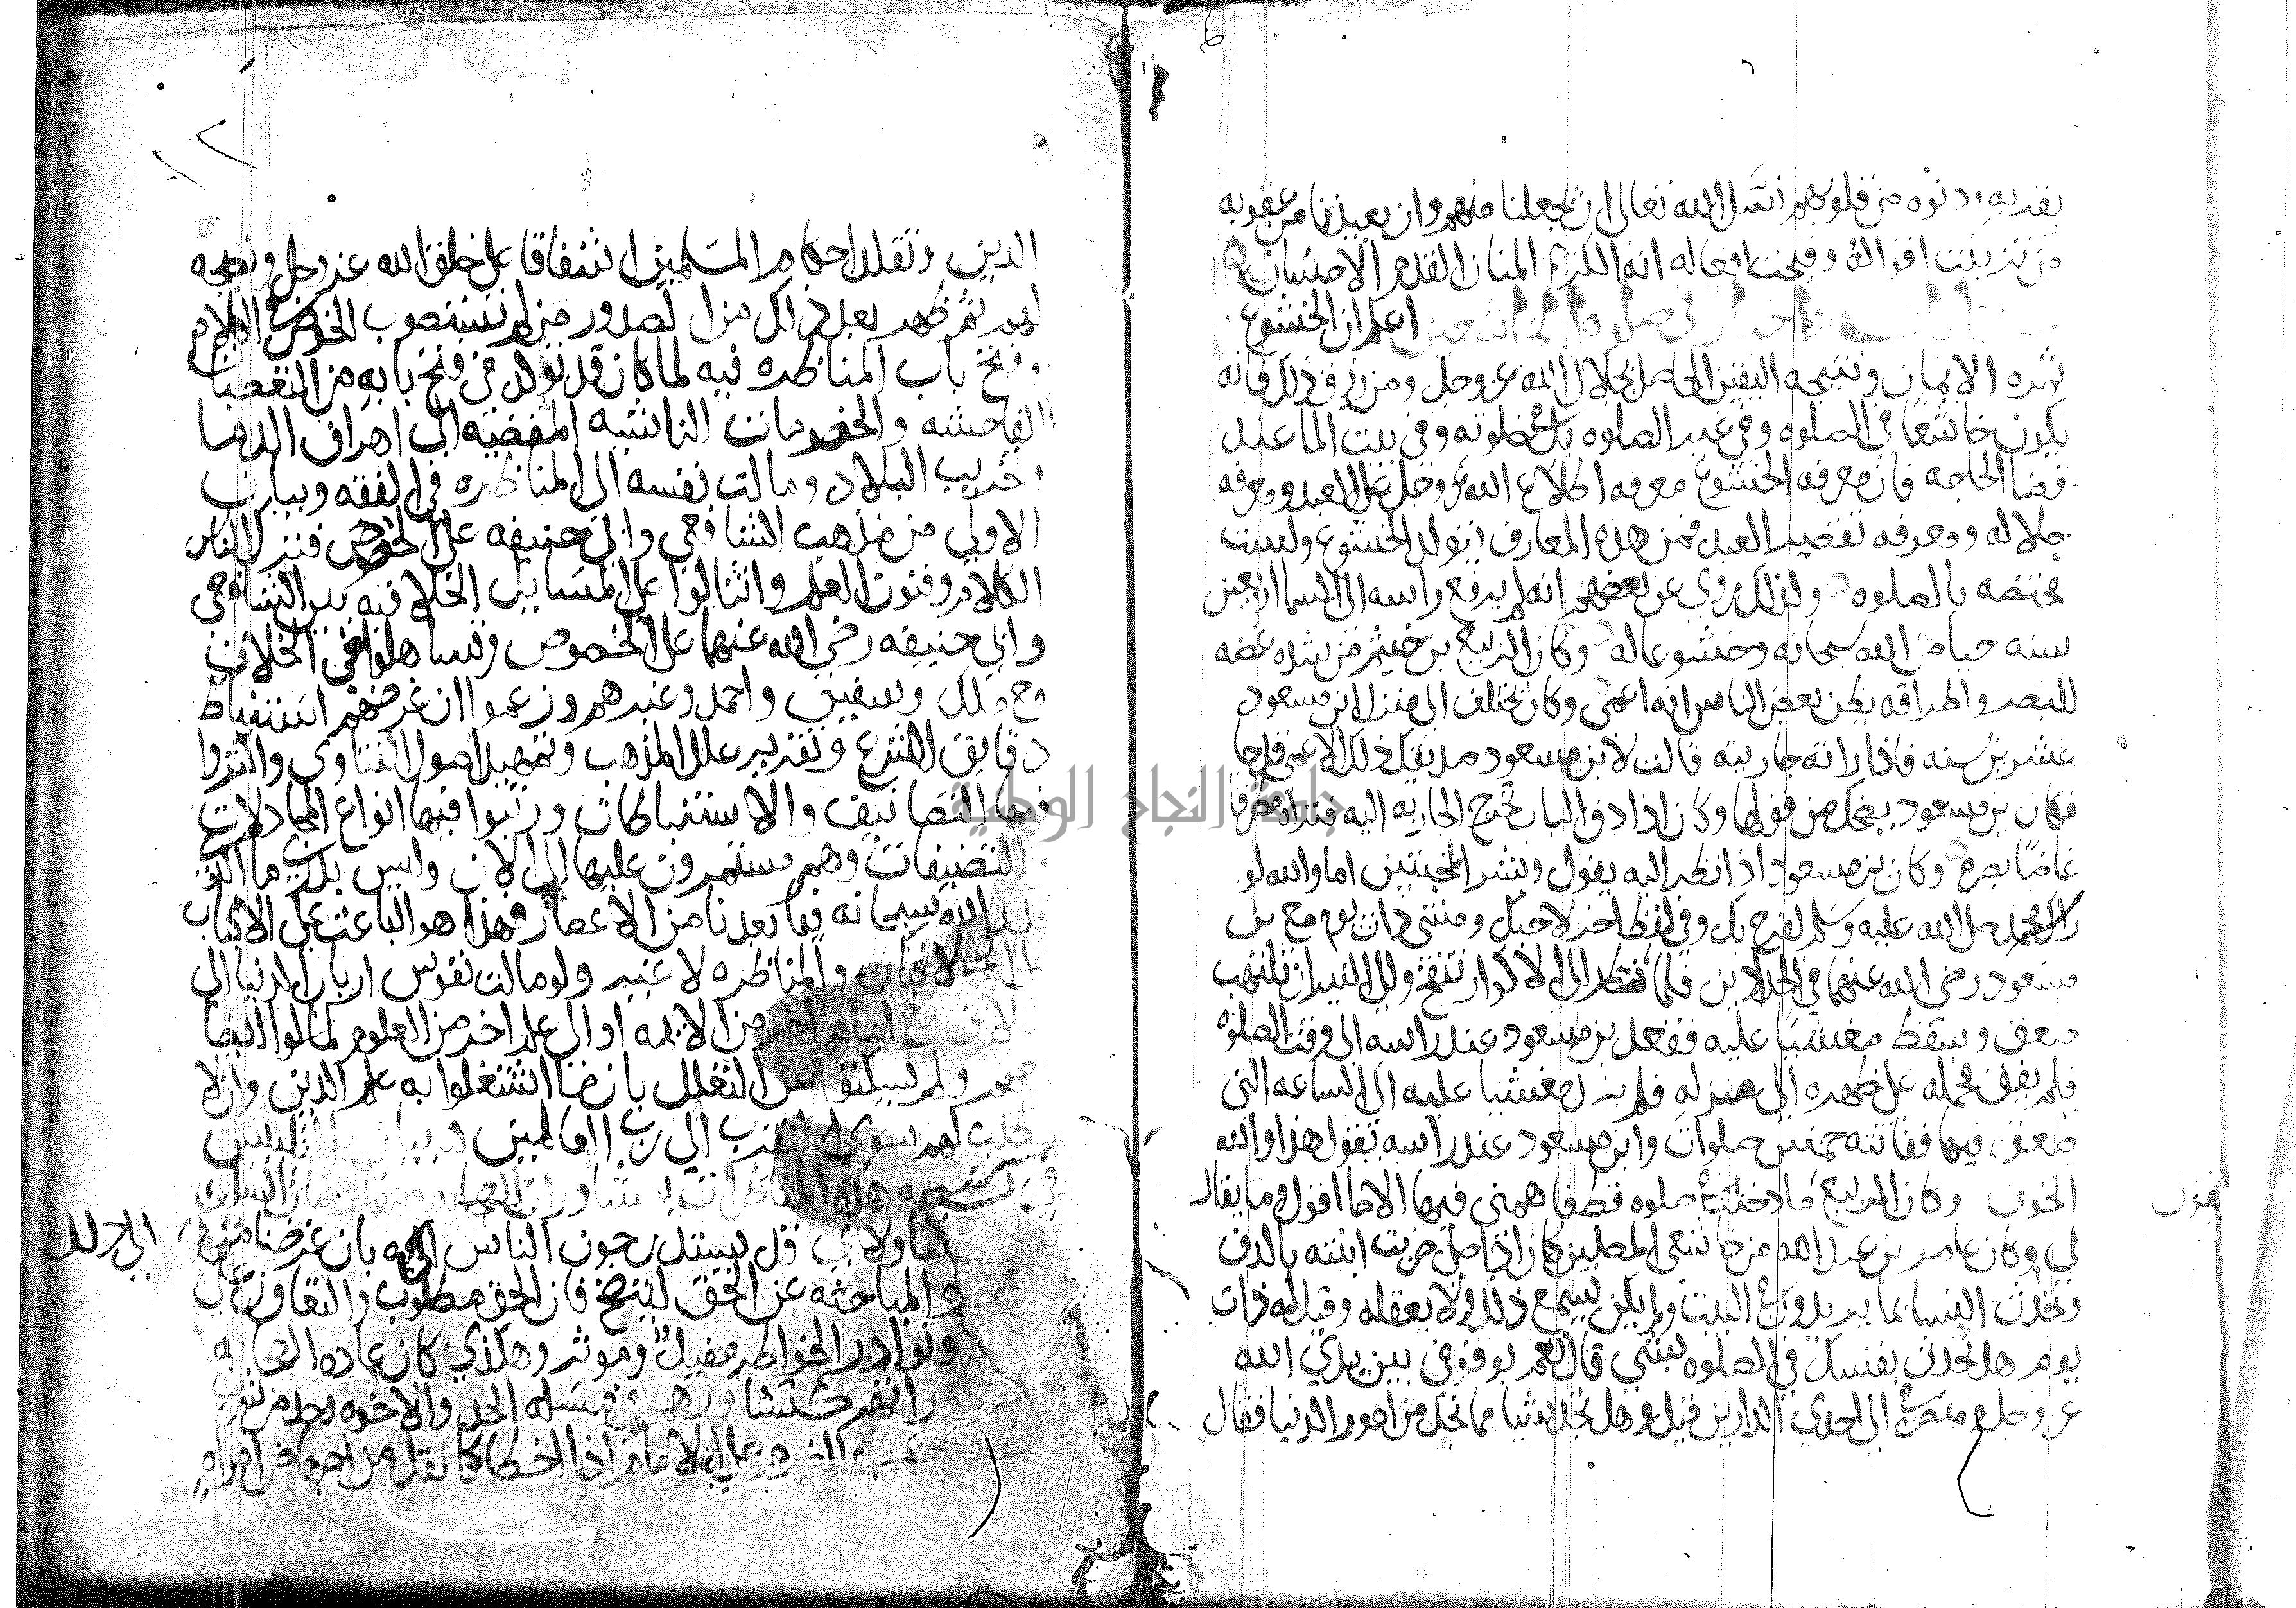 بقدرته ودنوه من قلوبهم نسل الله تعالى ان يجعلنا منهم وان يعيذنا من عقوبه
من تزينت اقواله وقبحت افعاله انه الكريم المنان القديم الاحسان
في صلوة الخاشعين اعلم ان الخشوع
ثمره الايمان ونتيجه اليقين الحاصل بجلال الله عز وجل ومن رزق ذلك فانه
يكون خاشعا في الصلوه وفي غير الصلوه بل في خلوته وفي بيت الما عند
قضا الحاجه فان معرفه الخشوع معرفه اطلاع الله عز وجل على العبد ومعرفه
جلاله ومعرفه تقصير العبد فمن هذه المعارف يتولد الخشوع وليست
مختصه بالصلوه ولذلك روي عن بعضهم انه لم يرفع راسه الى السما اربعين
سنه حيا من الله سبحانه وخشوعا له وكان الربيع بن خيثم من شده غضه
للبصر واطراقه يظن بعض الناس انه اعمى وكان يختلف الى منزل ابن مسعود
عشرين سنه فاذا راته جاريته قالت لابن مسعود صديقك ذلك الاعمى قد جا
فكان بن مسعود يضحك من قولها وكان اذا دق الباب تخرج الجاريه اليه فتراه مطرقا
غاضا بصره وكان بن مسعود اذا نظر اليه يقول وبشر المخبتين اما والله لو
راك محمد صلى الله عليه وسلم لفرح بك وفي لفظ اخر لاحبك ومشى ذات يوم مع بن
مسعود رضي الله عنهما في الحدادين فلما نظر الى الاكوار تنفخ والى النيران تلتهب
صعق وسقط مغشيا عليه فقعد بن مسعود عند راسه الى وقت الصلوه
فلم يفق فحمله على ظهره الى منزله فلم يزل مغشيا عليه الى الساعه التى
صعق فيها ففاتته خمس صلوات وابن مسعود عند راسه يقول هذا والله
الخوف وكان الربيع يقول ما دخلت في صلوه قط فاهمني فيها الا ما اقول وما يقال
لي وكان عامر بن عبد الله من خاشعي المصلين كان اذا صلى ضربت ابنته بالدف
وتحدث النسا بما يريدون في البيت ولم يكن يسمع ذلك ولا يعقله وقيل له ذات
يوم هل تحدث نفسك في الصلوه بشي قال نعم بوقوفي بين يدي الله
عز وجل ومنصرفي الى احدي الدارين قيل وهل تجد شيا مما نجد من امور الدنيا فقال
الدين وتقلد احكام المسلمين اشفاقا على خلق الله عز وجل ونصيحه
لهم ثم ظهر بعد ذلك من الصدور من لم يستصوب الخوض في الكلام
وفتح باب المناظره فيه لما كان قد تولد من فتح بابه من التعصبات
الفاحشه والخصومات الناشيه المفضيه الى اهراق الدما
وتخريب البلاد ومالت نفسه الى المناظره في الفقه وبيان
الاولى من مذهب الشافعي وابي حنيفه على الخصوص فترك الناس
الكلام وفنون العلم وانثالوا على المسايل الخلافيه بين الشافعي
وابي حنيفه رضي الله عنهما على الخصوص وتساهلوا في الخلاف
مع ملك وسفين واحمد وغيرهم وزعموا ان غرضهم استنباط
دقايق الشرع وتقرير علل المذهب وتمهيد اصول الفتاوى واكثروا
فيها التصانيف والاستنباطات ورتبوا فيها انواع المجادلات
والتصنيفات وهم مستمرون عليها الى الان وليس ندري ما الذي
قدر الله سبحانه فيما بعدنا من الاعصار فهذا هو الباعث على الاكباب
على الخلافيات والمناظره لا غير ولو مالت نفوس ارباب الدنيا الى
الخلاف مع امام اخر من الايمه او الى علم اخر من العلوم لمالوا ايضا
معهم ولم يسكتوا عن التعلل بان ما اشتغلوا به علم الدين وان لا
مطلب لهم سوى التقرب الى رب العالمين بيان التلبيس
في تشبيه هذه المناظرات بمشاورات الصحابه ومفاوضات السلف
هاولاي قد يستدرجون الناس الى ذلك بان غرضنا من
المباحثه عن الحق ليتضح فان الحق مطلوب والتعاون على
وتوارد الخواطر مفيد وموثر وهكذي كان عاده الصحابه
تشاورهم في مسله الجد والاخوه وحد شرب